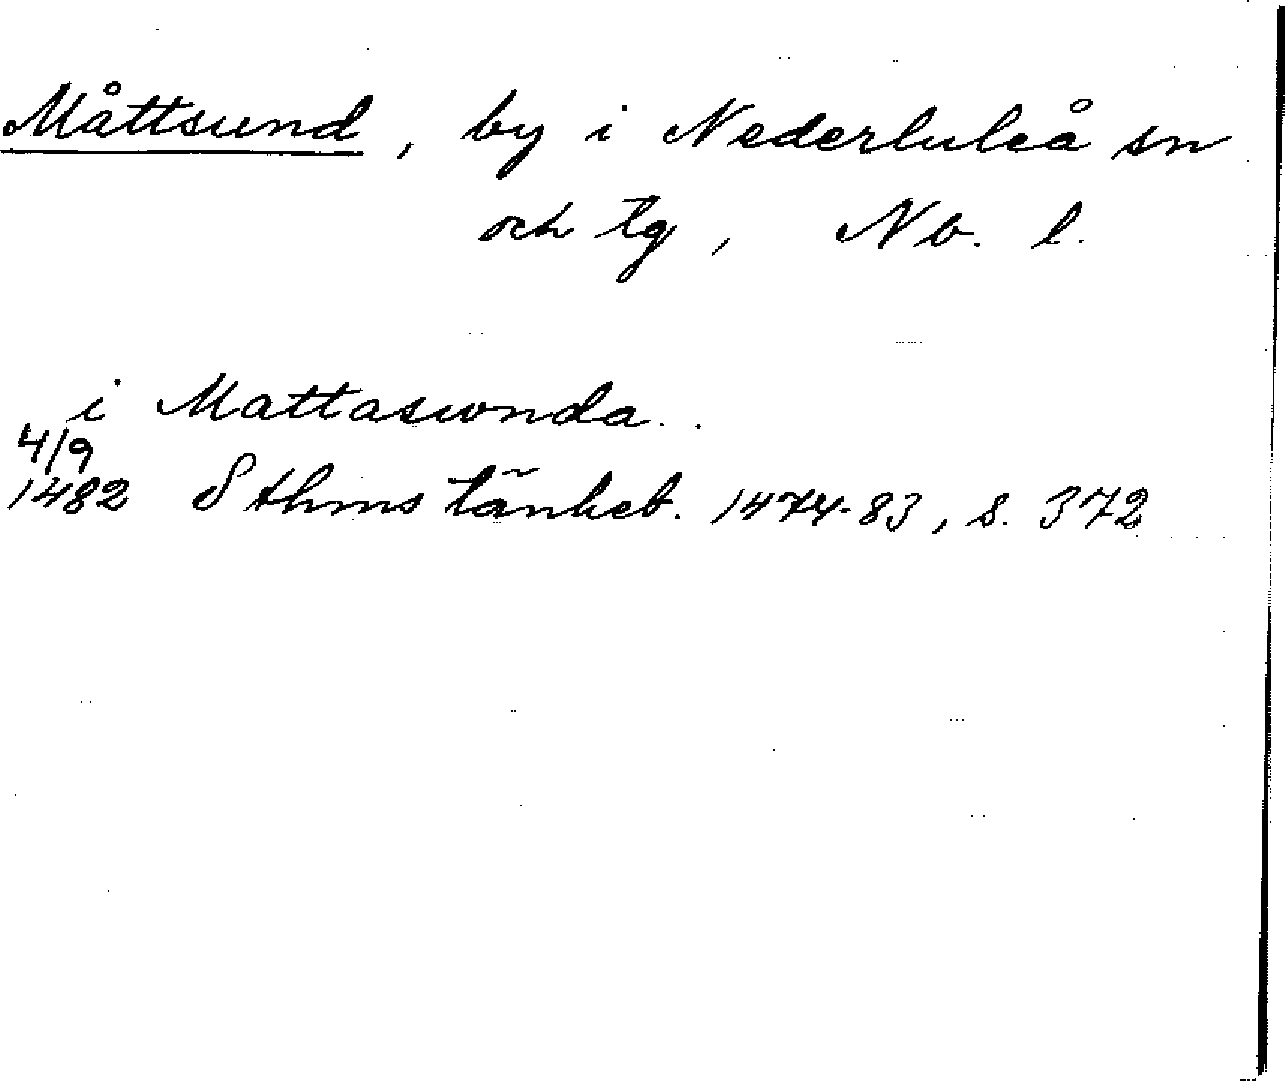 Måttsund, by i Nederluleå sn
och tg, Nb. l.
i Mattaswnda.
4/9
1482 Sthms tänkeb. 1474-83, s. 372